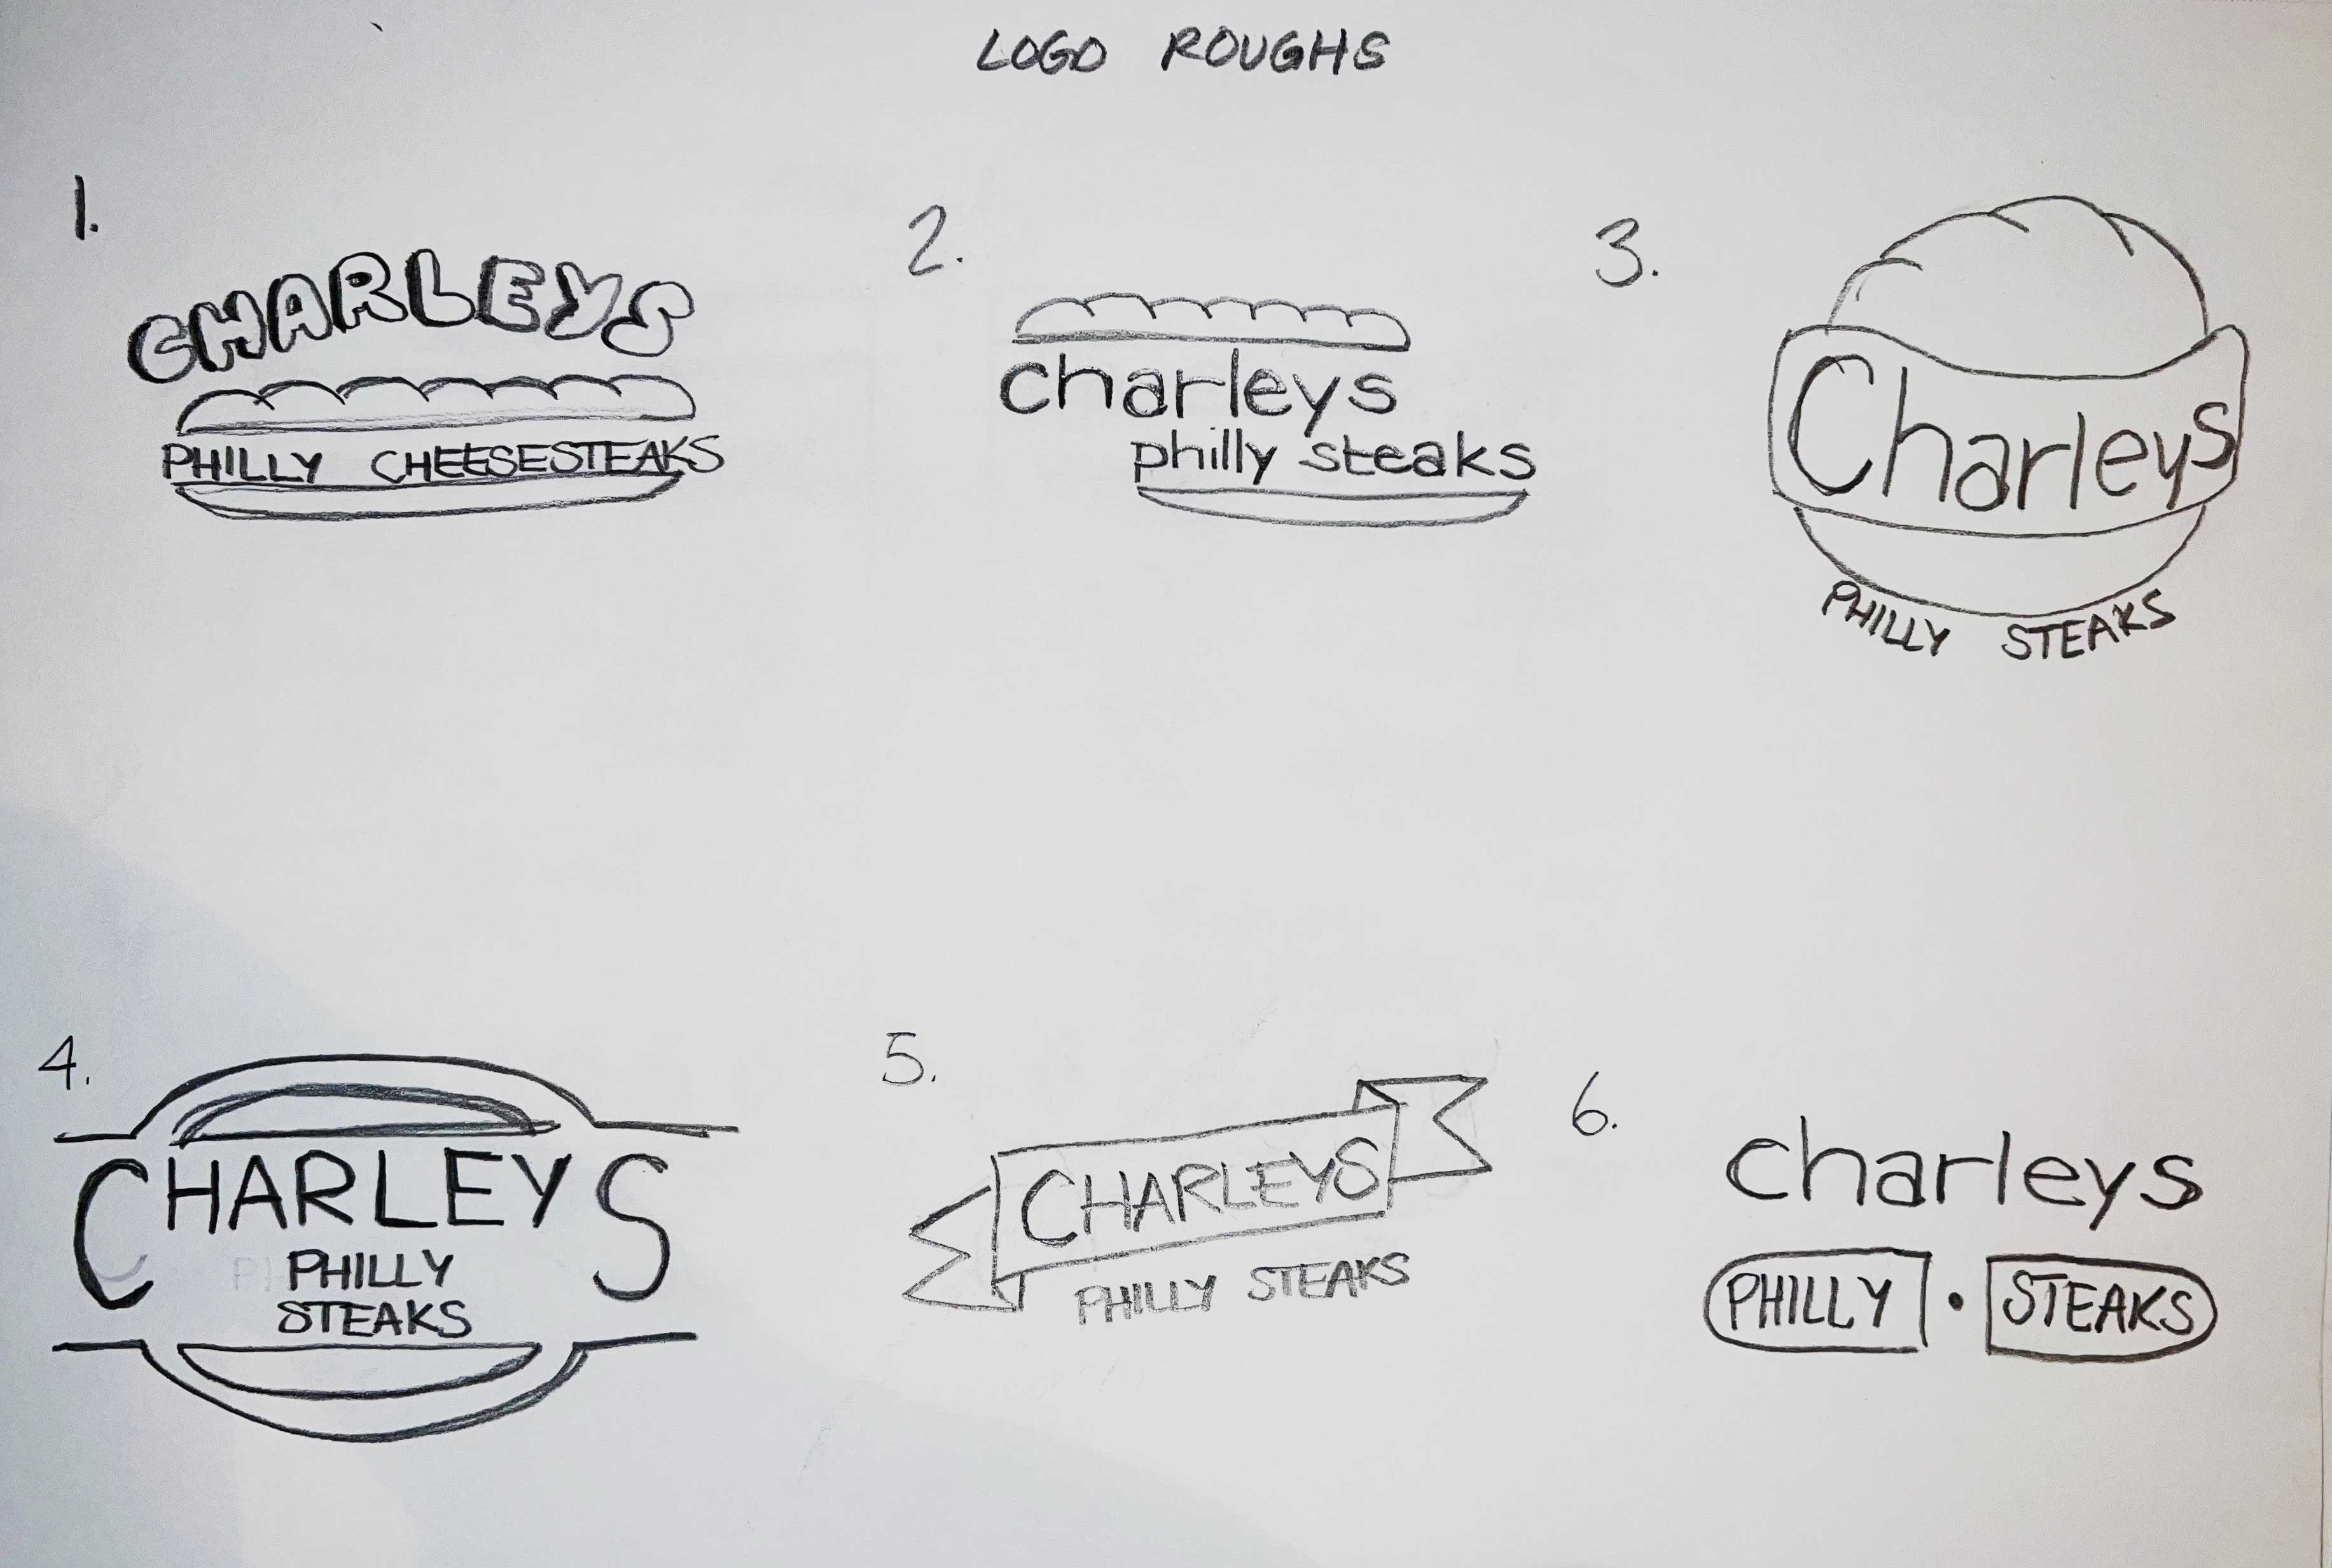 LOGO ROUGHS
1.
CHARLEYS
PHILLY CHEESESTEAKS
2.
charleys
philly steaks
3.
Charleys
PHILLY STEAKS
4.
CHARLEYS
PHILLY
STEAKS
5.
CHARLEYS
PHILLY STEAKS
6.
charleys
PHILLY • STEAKS